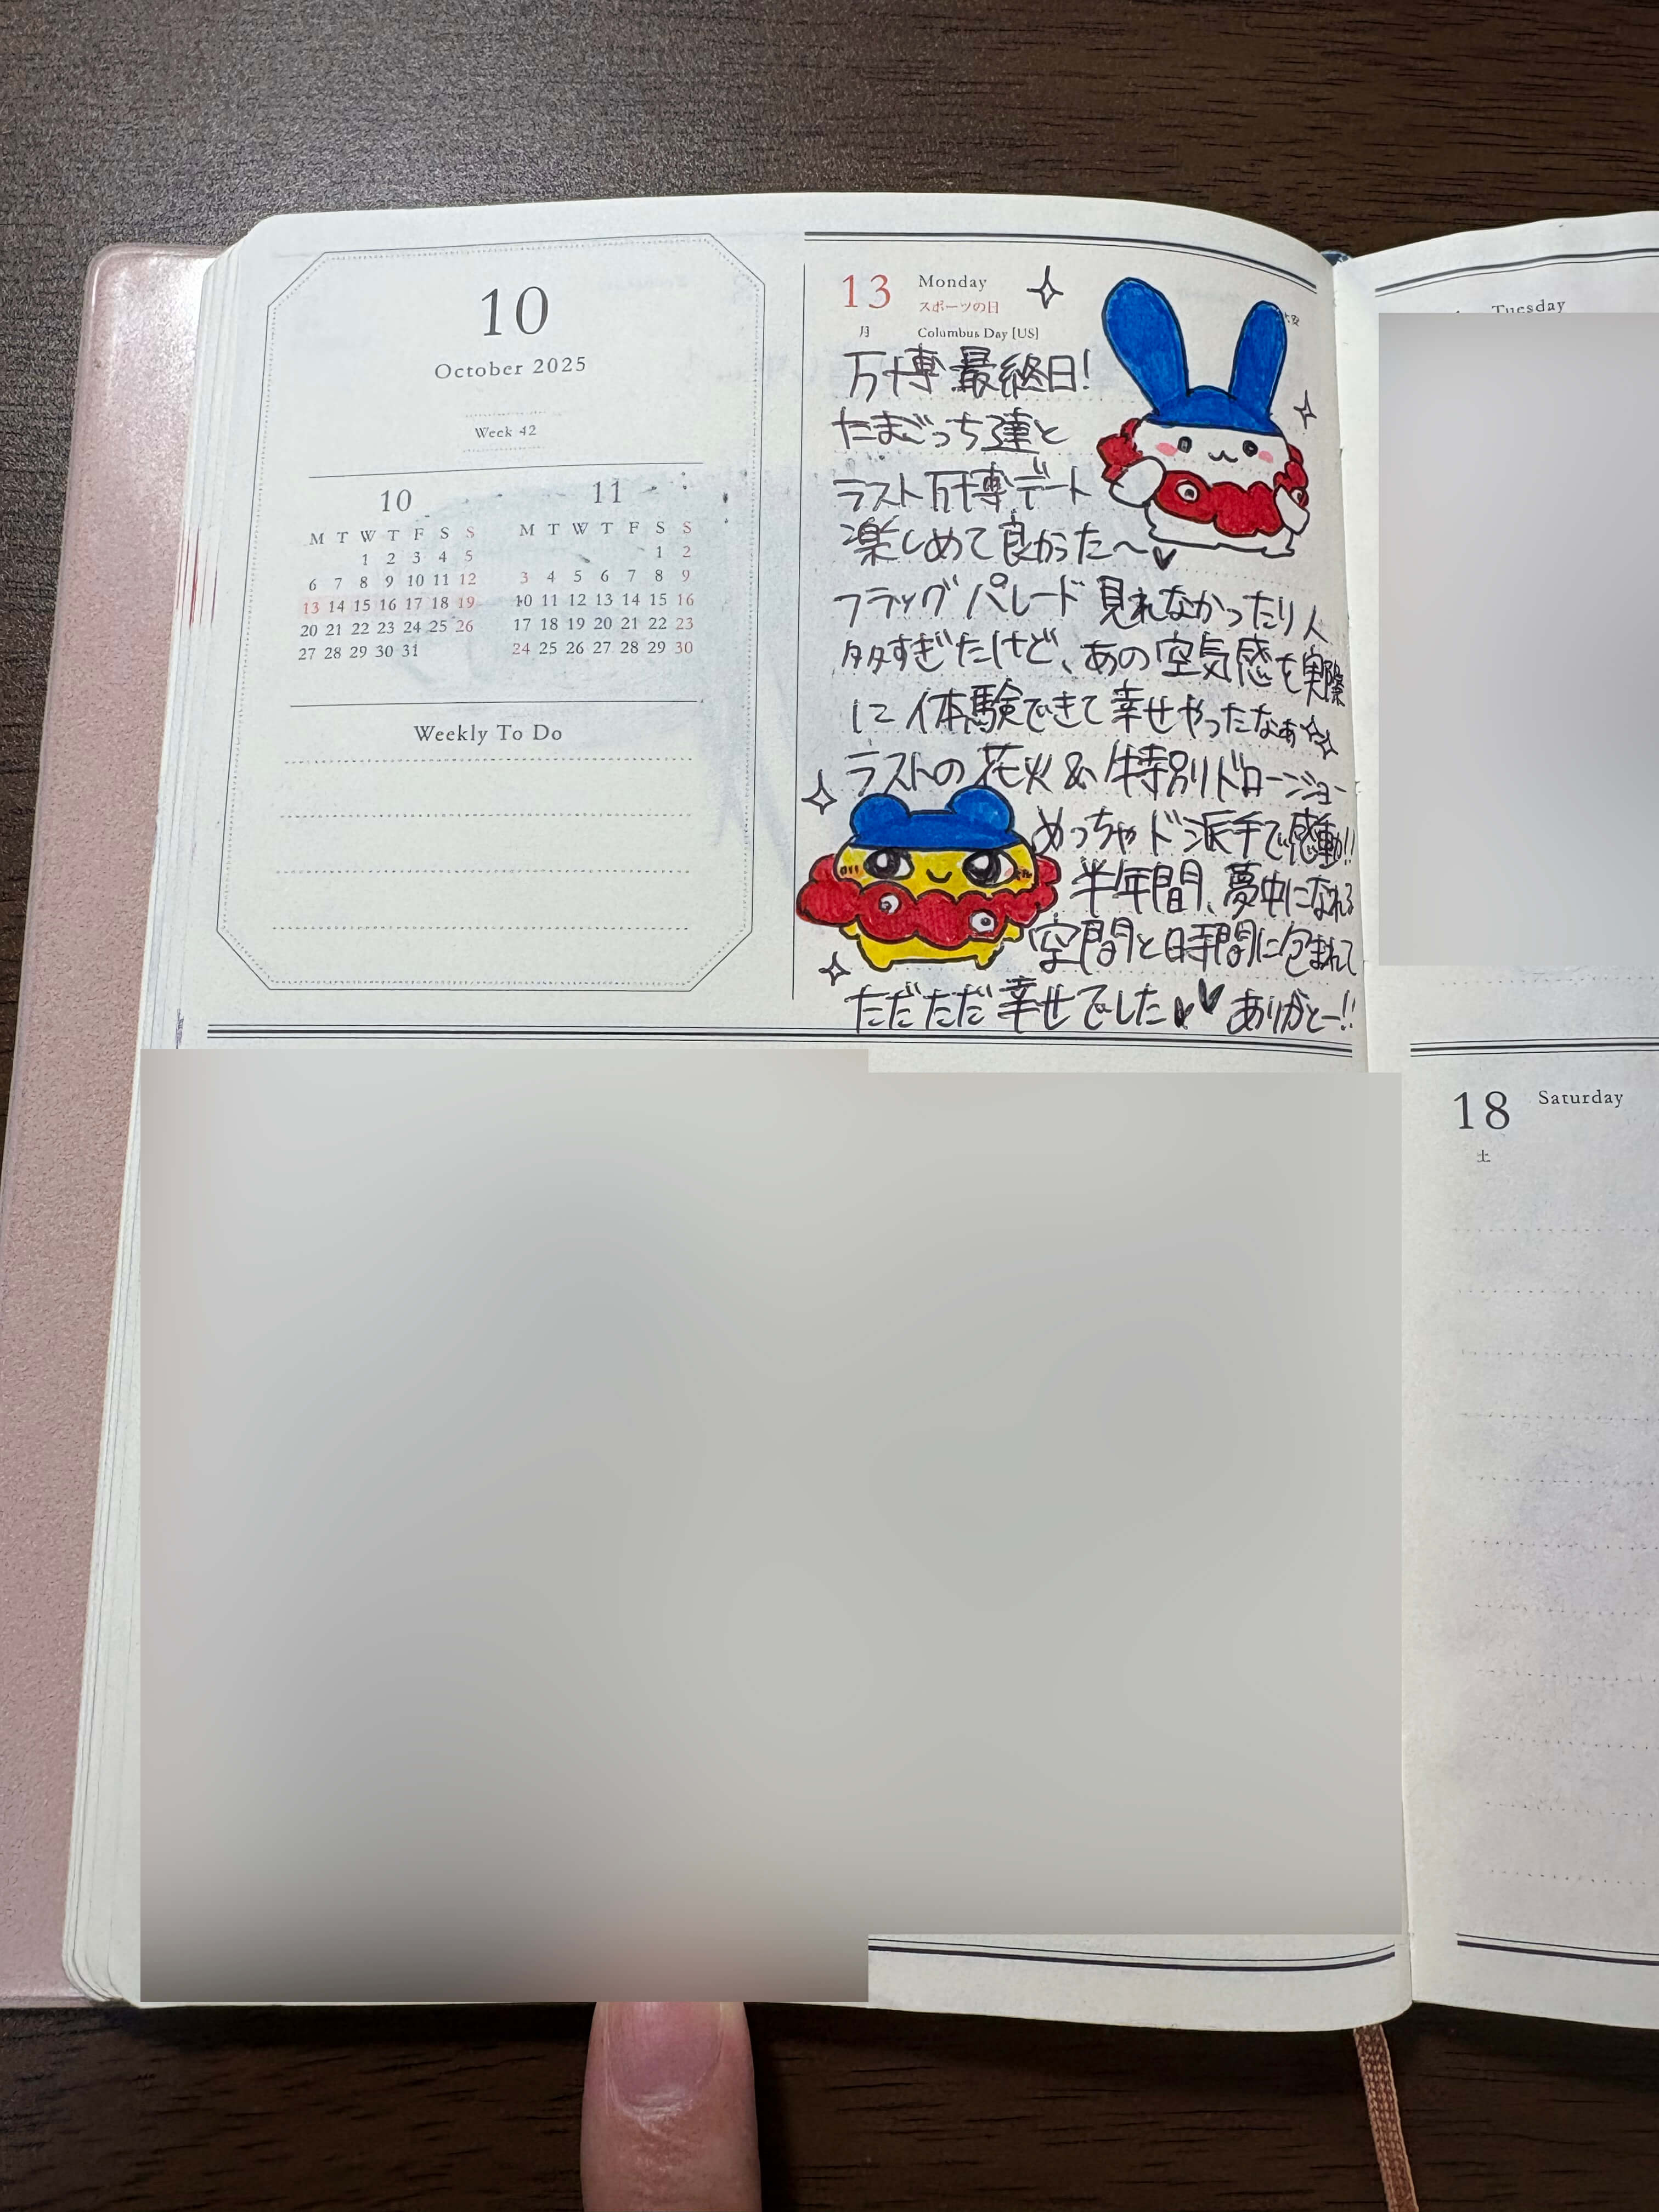 10
October 2025
Week 42
10
M T W T F S S
1 2 3 4 5
6 7 8 9 10 11 12
13 14 15 16 17 18 19
20 21 22 23 24 25 26
27 28 29 30 31
11
M T W T F S S
1 2
3 4 5 6 7 8 9
10 11 12 13 14 15 16
17 18 19 20 21 22 23
24 25 26 27 28 29 30
Weekly To Do
13 Monday
スポーツの日
月 Columbus Day [US]
万博最終日!
たまごっち達と
ラスト万博デート
楽しめて良かった〜♥
フラッグパレード見れなかったり人
多すぎたけど、あの空気感を実際
に体験できて幸せやったなぁ
ラストの花火&特別ドローンショー
めっちゃド派手で感動!!
半年間、夢中になれる
空間と時間に包まれて
ただただ幸せでした♥♥ ありがとー!!
Tuesday
18 Saturday
土